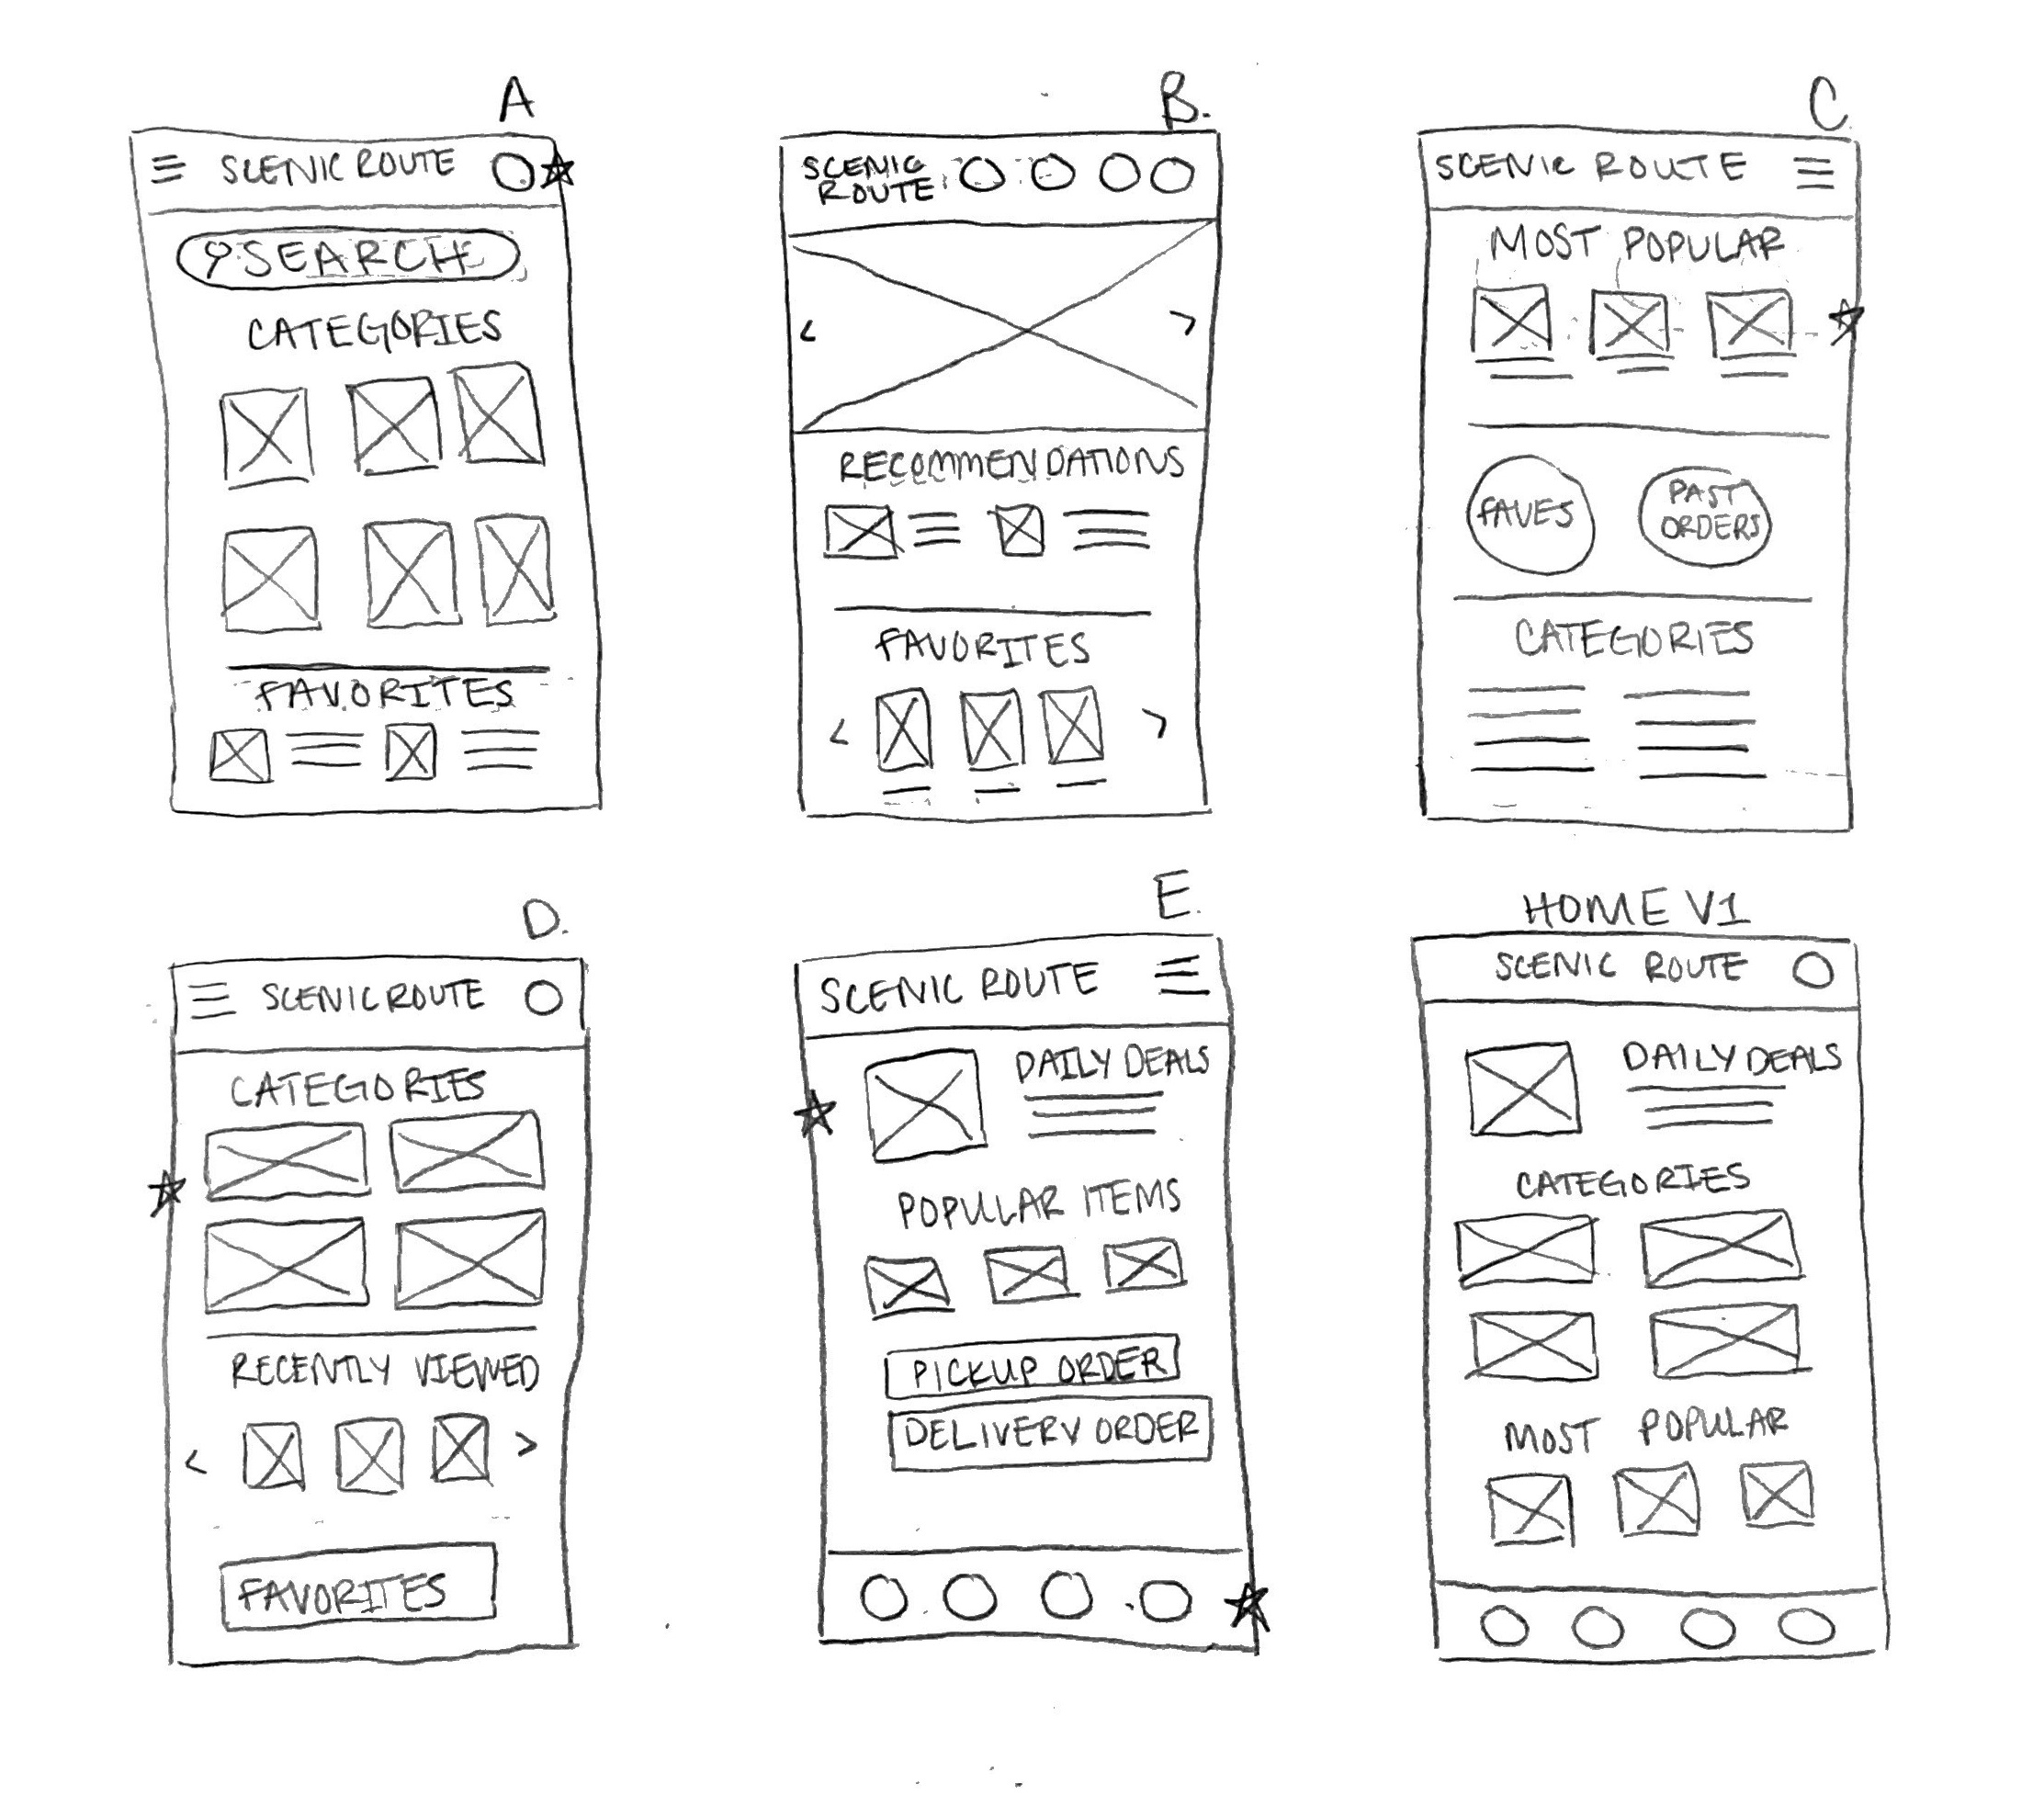 A
SCENIC ROUTE
SEARCH
CATEGORIES
FAVORITES
B.
SCENIC
ROUTE
RECOMMENDATIONS
FAVORITES
C.
SCENIC ROUTE
MOST POPULAR
FAVES
PAST
ORDERS
CATEGORIES
D.
SCENIC ROUTE
CATEGORIES
RECENTLY VIEWED
FAVORITES
E.
SCENIC ROUTE
DAILY DEALS
POPULAR ITEMS
PICKUP ORDER
DELIVERY ORDER
HOME V1
SCENIC ROUTE
DAILY DEALS
CATEGORIES
MOST POPULAR